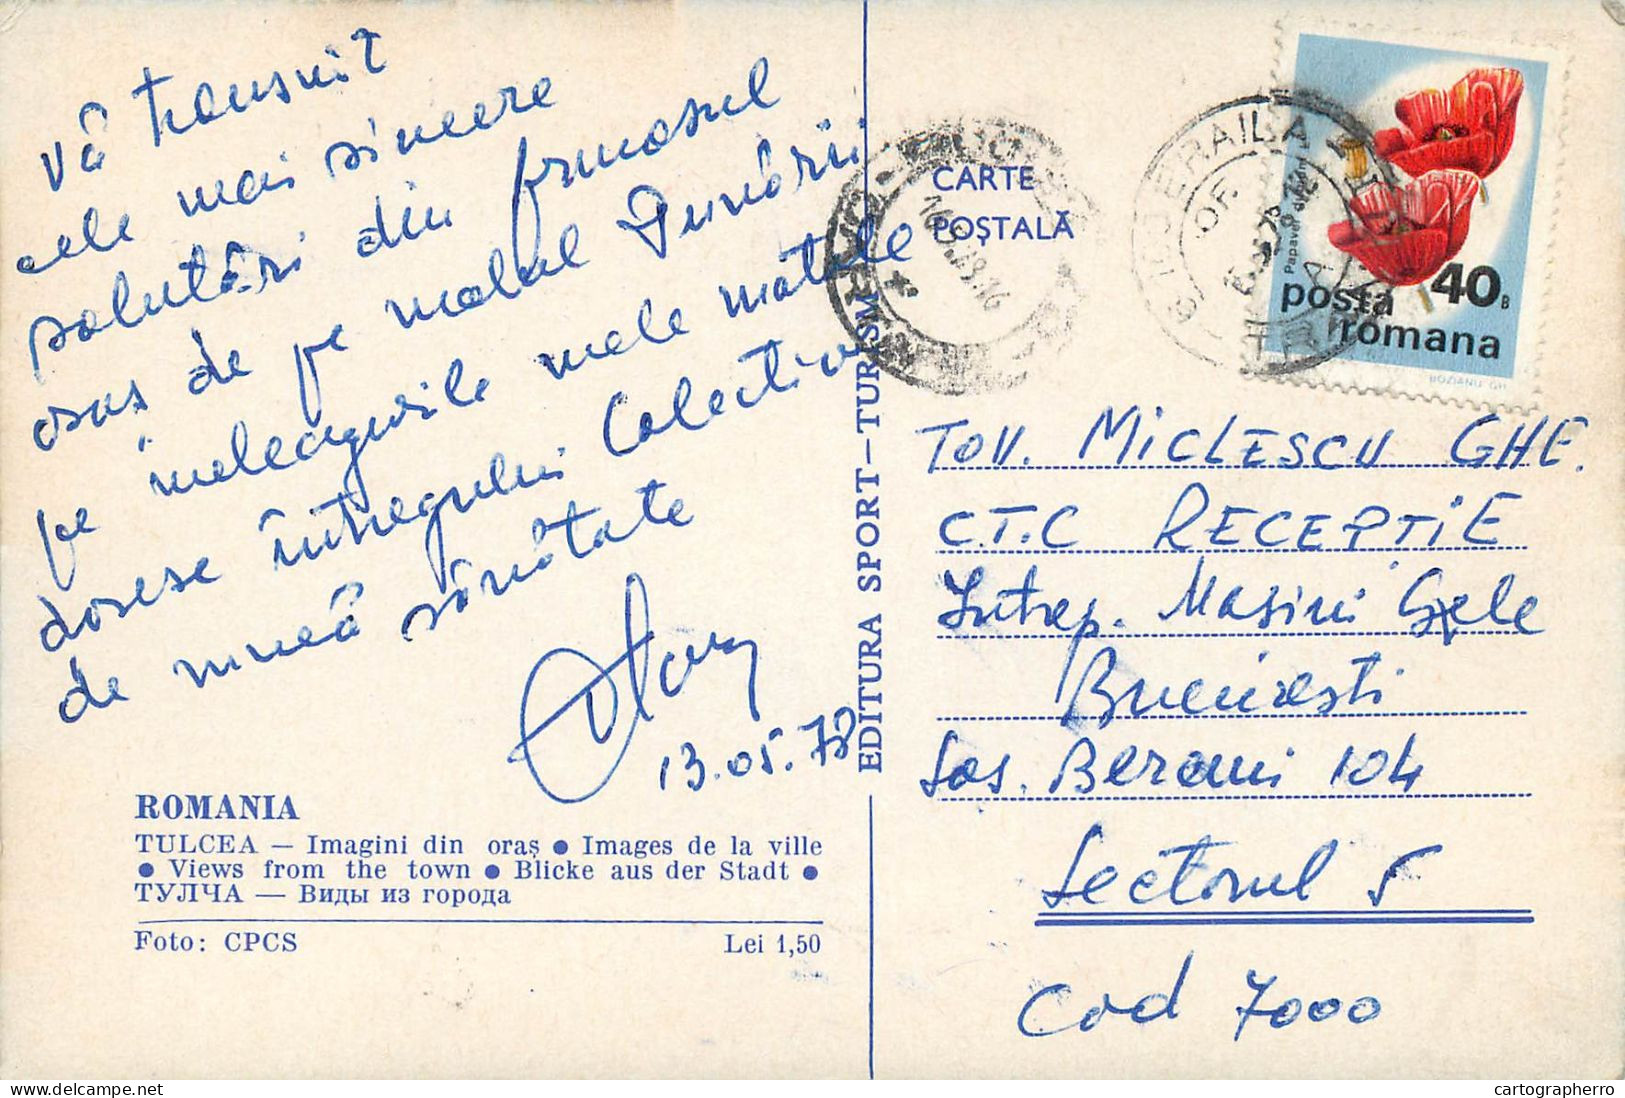 Vă transmit
cele mai sincere
salutări din frumosul
oraș de pe malul Dunării.
pe meleagurile mele natale
doresc întregului Colectiv
de muncă sănătate
13.05.78
ROMANIA
TULCEA — Imagini din oraș ● Images de la ville
● Views from the town ● Blicke aus der Stadt ●
ТУЛЧА — Виды из города
Foto: CPCS Lei 1,50
EDITURA SPORT—TURISM
CARTE
POȘTALĂ
BRAILA
posta
romana
40B
BOZIANU GH.
Tov. MICLESCU GHE.
C.T.C RECEPTIE
Intrep. Masini Grele
Bucuresti
Sos. Berceni 104
Sectorul 5
Cod 7000
cartographerro